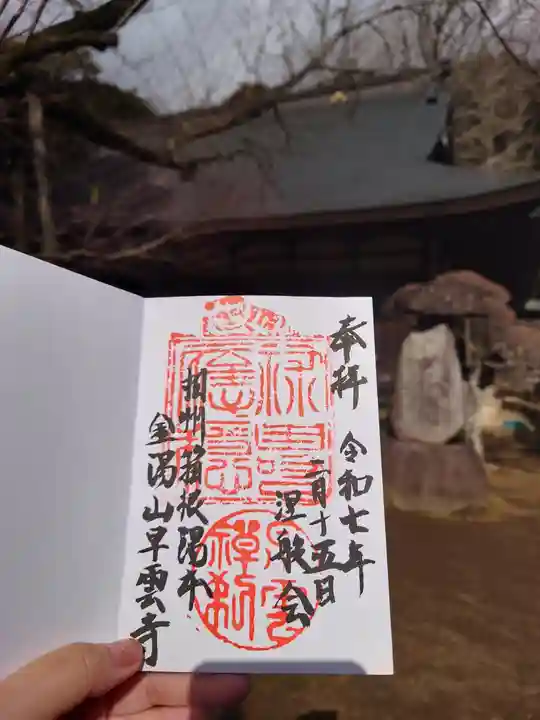 奉拝
令和七年
二月十五日
涅槃会
相州箱根湯本
金湯山早雲寺